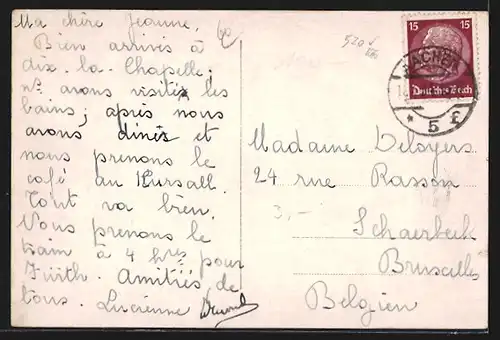 Ma chère Jeanne,
Bien arrivés à
Aix-la-Chapelle;
ns avons visités les
bains; après nous
avons dinés et
nous prenons le
café au Kursall.
Tout va bien.
Nous prenons le
train à 4 hres pour
Fürth. Amitiés de
tous. Lucienne
Madame Deloyers
24 rue Rasson
Schaerbeek
Bruxelles
Belgien
3,-
15 15
Deutsches Reich
AACHEN
* 5 f